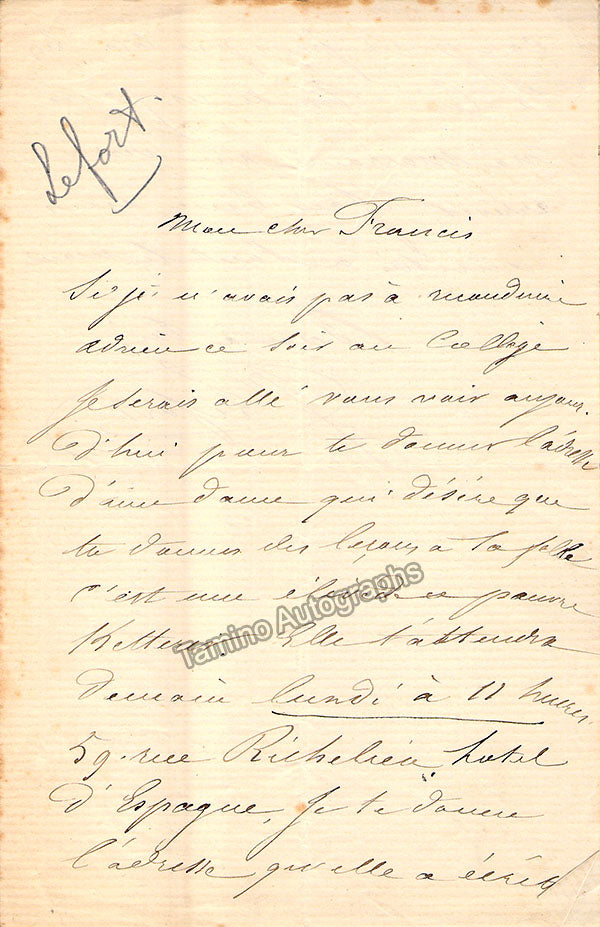 Lefort.
Mon cher Francis
Si je n'avais pas à reconduire
adrien ce soir au College
Je serais allé vous voir aujour-
d'hui pour te donner l'adresse
d'une dame qui désire que
tu donnes des leçons a sa fille
c'est une élève de ce pauvre
Ketterer. Elle t'attendra
demain lundi à 11 heures
59. rue Richelieu, hotel
d'Espagne, Je te donne
l'adresse qu'elle a écrit
Tamino Autographs